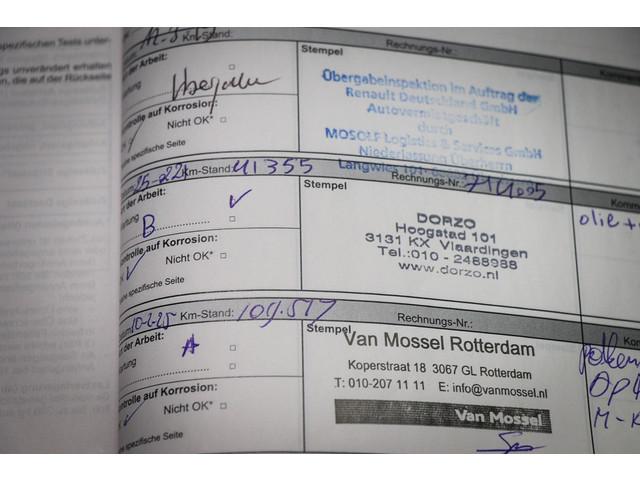 Km-Stand:
Rechnungs-Nr.:
Stempel
Übergabeinspektion im Auftrag der
Renault Deutschland GmbH
Autovermietgeschäft
durch
MOSOLF Logistics & Services GmbH
Niederlassung Überherrn
Arbeit:
Übergabe
auf Korrosion:
Nicht OK*
spezifische Seite
spezifischen Tests
unverändert erhalten
die auf der Rückseite
Km-Stand: 41355
Rechnungs-Nr.:
Stempel
DORZO
Hoogstad 101
3131 KX Vlaardingen
Tel.:010 - 2488988
www.dorzo.nl
der Arbeit:
B
auf Korrosion:
Nicht OK*
spezifische Seite
olie +
10-2-25 Km-Stand: 109.517
Rechnungs-Nr.:
Stempel
Van Mossel Rotterdam
Koperstraat 18 3067 GL Rotterdam
T: 010-207 11 11 E: info@vanmossel.nl
Van Mossel
der Arbeit:
A
auf Korrosion:
Nicht OK*
spezifische Seite